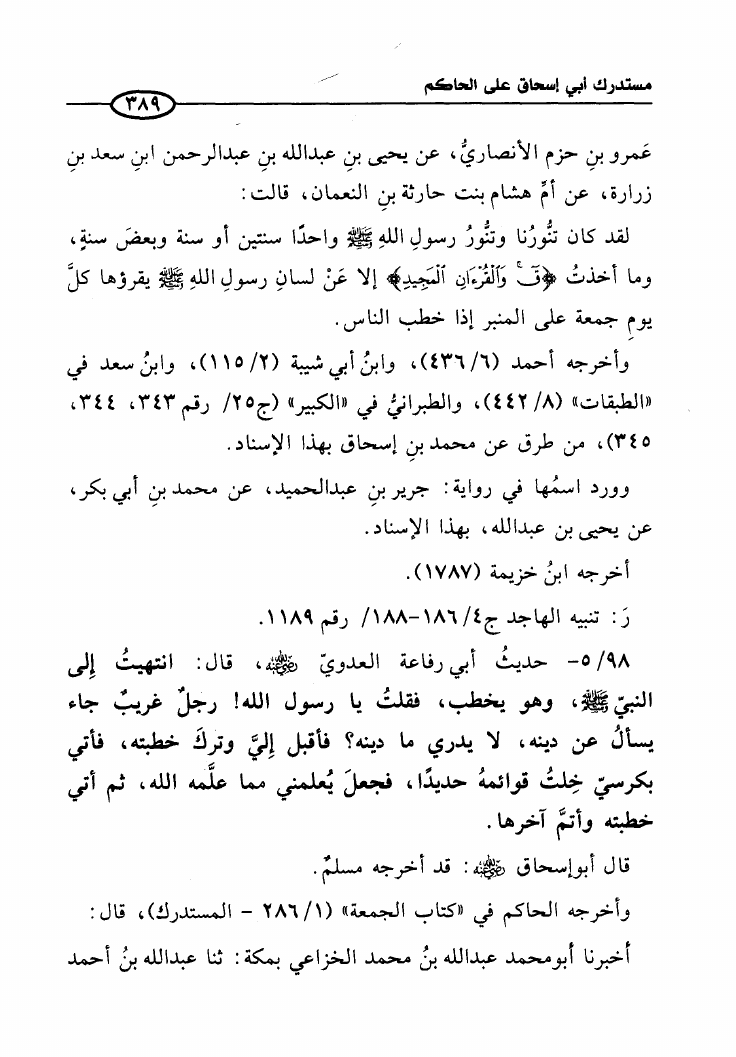 مستدرك أبي إسحاق على الحاكم
٣٨٩
عَمرو بنِ حزم الأنصاريُّ، عن يحيى بنِ عبدالله بنِ عبدالرحمن ابنِ سعد بنِ
زرارة، عن أمِّ هشام بنت حارثة بنِ النعمان، قالت:
لقد كان تنُّورُنا وتنُّورُ رسولِ اللهِ ﷺ واحدًا سنتين أو سنة وبعضَ سنةٍ،
وما أخذتُ ﴿قٓۚ وَٱلْقُرْءَانِ ٱلْمَجِيدِ﴾ إلا عَنْ لسانِ رسولِ اللهِ ﷺ يقرؤها كلَّ
يومِ جمعة على المنبر إذا خطب الناس.
وأخرجه أحمد (٤٣٦/٦)، وابنُ أبي شيبة (١١٥/٢)، وابنُ سعد في
«الطبقات» (٤٤٢/٨)، والطبرانيُّ في «الكبير» (ج٢٥/ رقم ٣٤٣، ٣٤٤،
٣٤٥)، من طرق عن محمد بنِ إسحاق بهذا الإسناد.
وورد اسمُها في رواية: جرير بنِ عبدالحميد، عن محمد بنِ أبي بكر،
عن يحيى بن عبدالله، بهذا الإسناد.
أخرجه ابنُ خزيمة (١٧٨٧).
رَ: تنبيه الهاجد ج٤/ ١٨٦-١٨٨/ رقم ١١٨٩.
٥/٩٨- حديثُ أبي رفاعة العدويّ رضي الله عنه، قال: انتهيتُ إلى
النبيّ ﷺ، وهو يخطب، فقلتُ يا رسول الله! رجلٌ غريبٌ جاء
يسألُ عن دينه، لا يدري ما دينه؟ فأقبل إليَّ وتركَ خطبته، فأتي
بكرسيّ خِلتُ قوائمهُ حديدًا، فجعلَ يُعلمني مما علَّمه الله، ثم أتي
خطبته وأتمَّ آخرها.
قال أبوإسحاق رضي الله عنه: قد أخرجه مسلمٌ.
وأخرجه الحاكم في «كتاب الجمعة» (٢٨٦/١ - المستدرك)، قال:
أخبرنا أبومحمد عبدالله بنُ محمد الخزاعي بمكة: ثنا عبدالله بنُ أحمد